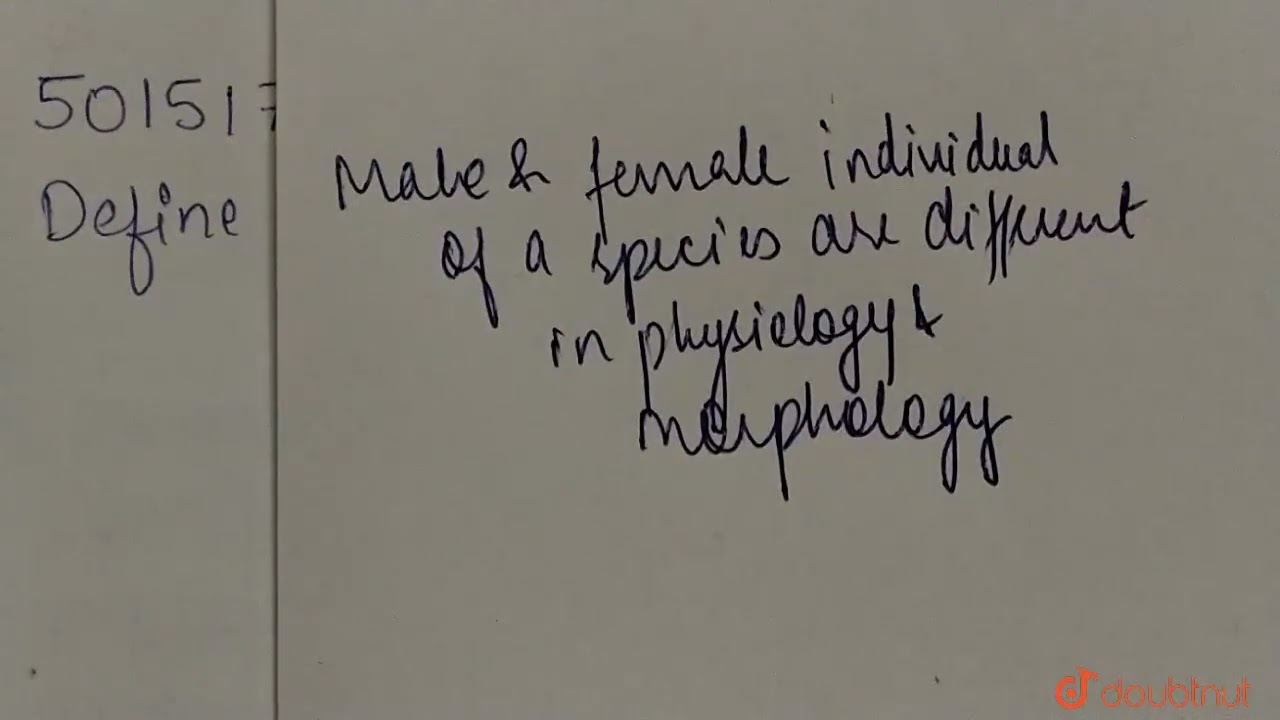 501517
Define
Male & female individual
of a species are different
in physiology &
morphology
doubtnut